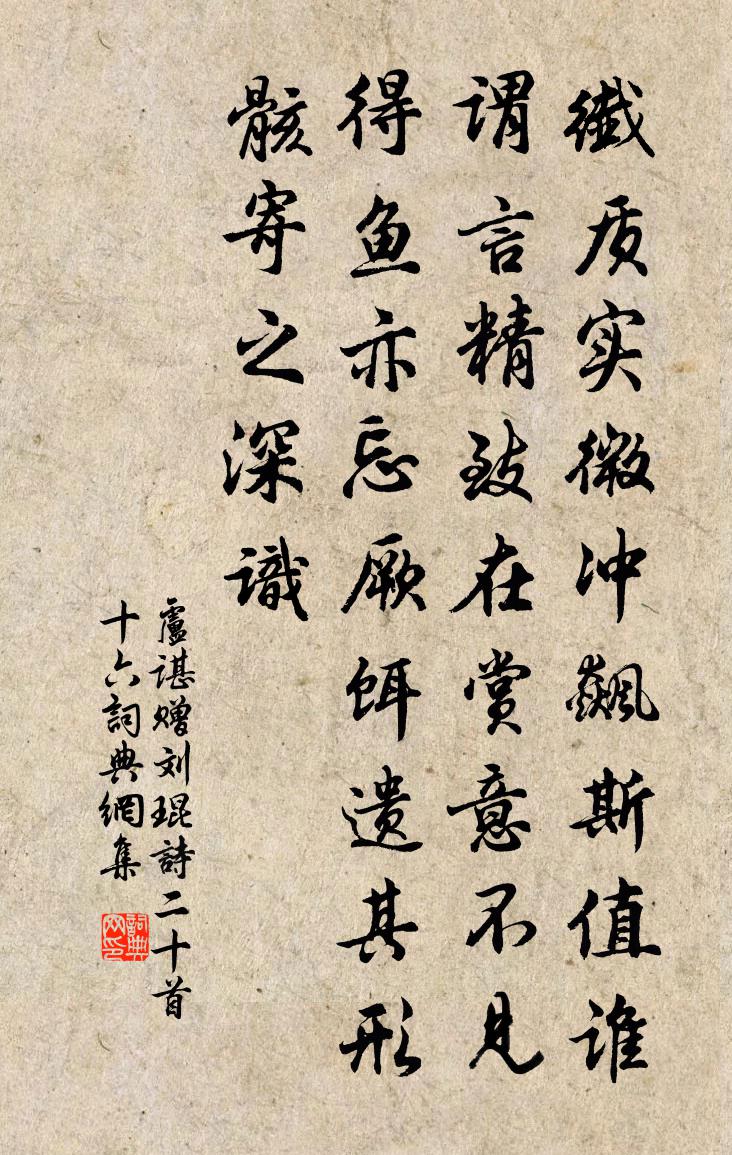 纖质实微冲飙斯值谁
谓言精致在赏意不见
得鱼亦忘厥饵遗其形
骸寄之深識
盧諶赠刘琨詩二十首
十六詞典網集
詞典
网印